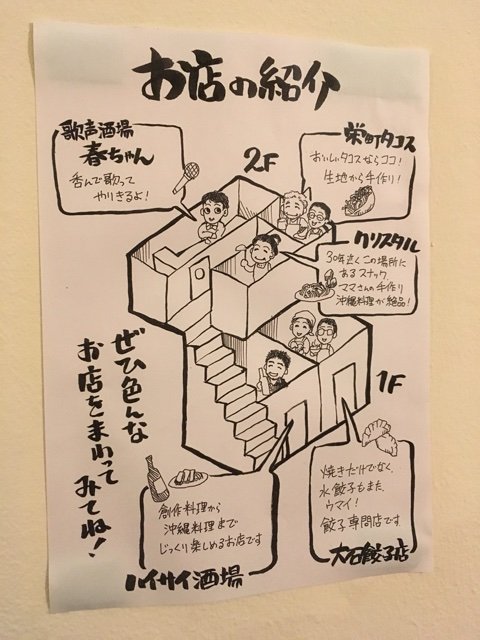 お店の紹介
歌声酒場
春ちゃん
呑んで歌って
やりきるよ!
2F
栄町タコス
おいしいタコスならココ!
生地から手作り!
クリスタル
30年近くこの場所に
あるスナック。
ママさんの手作り
沖縄料理が絶品!
1F
ぜひ色んな
お店をまわって
みてね!
創作料理から
沖縄料理まで
じっくり楽しめるお店です
ハイサイ酒場
焼きだけでなく、
水餃子もまた、
ウマイ!
餃子専門店です
大石餃子店